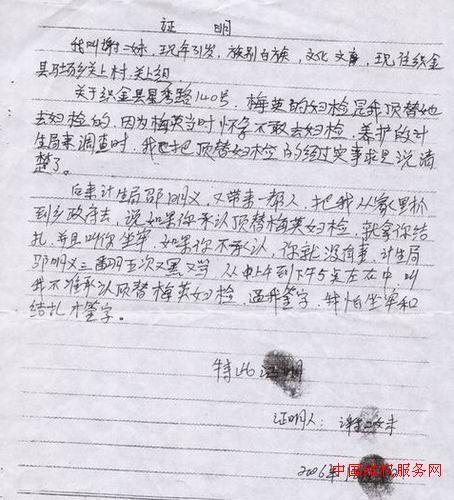 证 明
我叫谢二妹，现年31岁，族别白族，文化文盲，现住织金
县马场乡关上村，关上组
关于织金县星秀路140号，梅英的妇检是我顶替她
去妇检的，因为梅英当时怀孕不敢去妇检，养护的计
生局来调查时，我也把顶替妇检的经过实事求是说清
楚了。
后来计生局邵明义，又带来一帮人，把我从家里抓
到乡政府去，说如果你承认顶替梅英妇检，就拿你结
扎，并且叫你坐牢，如果你不承认，你就没有事，计生局
邵明义三番五次又骂又 从中午到下午5点左右 叫
我不准承认顶替梅英妇检，逼我签字，我怕坐牢和
结扎才签字。
特此证明
证明人：谢二妹
2006年
中国维权服务网